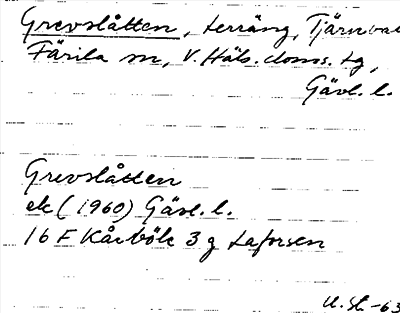 Grevslåtten, terräng, Tjärnvall
Färila sn, V. Häls. doms. tg,
Gävl. l.
Grevslåtten
ek (1960) Gävl. l.
16 F Kårböle 3 g Laforsen
U. St. -63